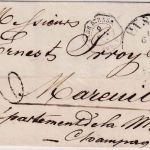 Messieurs
Ernest Irroy &
Mareuil
Département de la M
Champagne